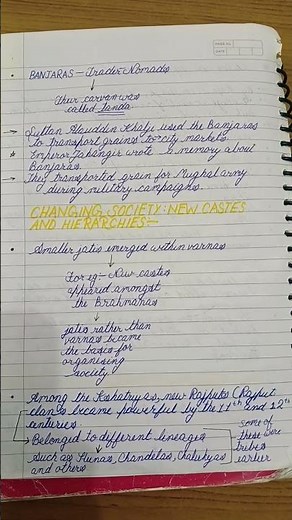 BANJARAS - Trader-Nomads
↓
Their carvan was
called Tanda.
→ Sultan Alauddin Khalji used the Banjaras
to transport grains to city markets.
* Emperor Jahangir wrote in memory about
Banjaras.
→ They transported grain for Mughal army
during military campaigns.
CHANGING SOCIETY: NEW CASTES
AND HIERARCHIES-
• Smaller jatis emerged within varnas
↓
For eg- New castes
appeared amongst
the Brahmanas
↓
jatis rather than
varnas became
the basis for
organising
society
• Among the Kshatriyas, new Rajputs (Rajput
clans became powerful by the 11th and 12th
centuries
→ Belonged to different lineages
Such as Hunas, Chandelas, Chalukyas
and others
some of
these were
tribes
earlier